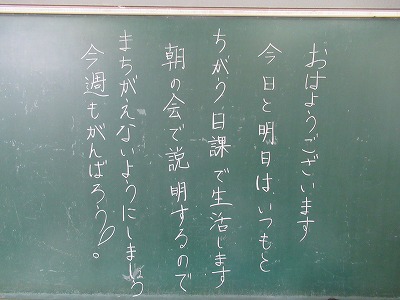 おはようございます
今日と明日はいつもと
ちがう日課で生活します
朝の会で説明するので
まちがえないようにしましょう
今週もがんばろう!。